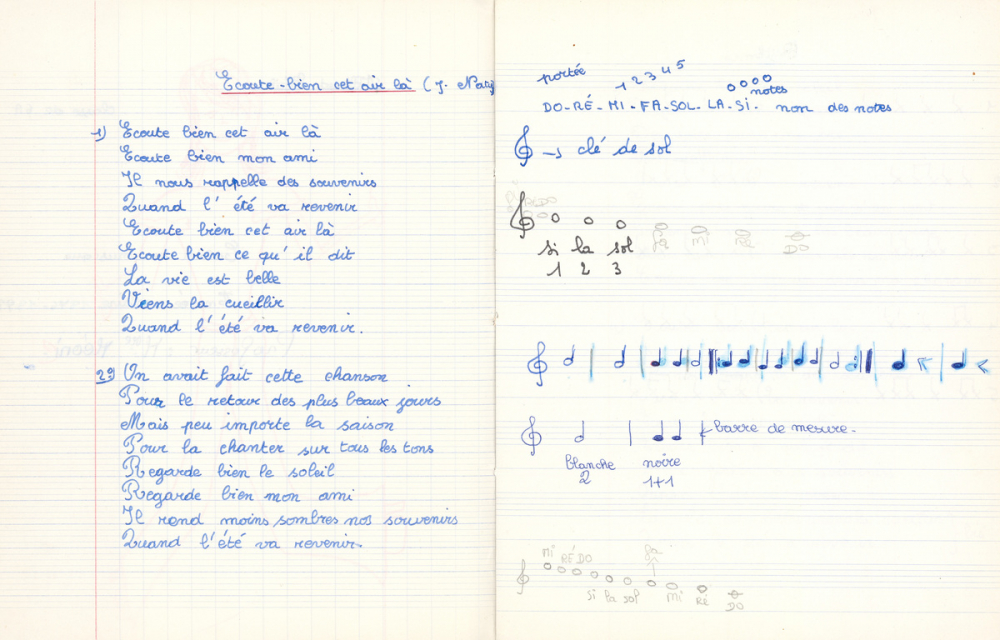 Ecoute-bien cet air là (J. Naty
1) Ecoute bien cet air là
Ecoute bien mon ami
Il nous rappelle des souvenirs
Quand l' été va revenir
Ecoute bien cet air là
Ecoute bien ce qu' il dit
La vie est belle
Viens la cueillir
Quand l' été va revenir.
2) On avait fait cette chanson
Pour le retour des plus beaux jours
Mais peu importe la saison
Pour la chanter sur tous les tons
Regarde bien le soleil
Regarde bien mon ami
Il rend moins sombres nos souvenirs
Quand l' été va revenir.
portée 1 2 3 4 5
notes
DO-RÉ-MI-FA-SOL-LA-SI. non des notes
clé de sol
si la sol Fa Mi Ré DO
1 2 3
barre de mesure.
blanche noire
2 1+1
Mi RÉ DO Fa
si la sol Mi Ré DO